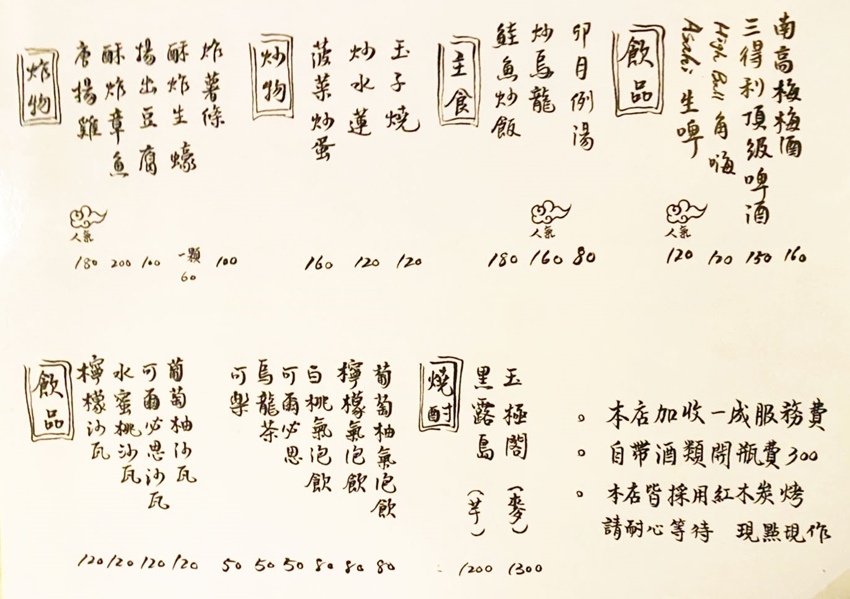 炸物
唐揚雞 人氣 180
酥炸章魚 200
揚出豆腐 100
酥炸生蠔 一顆 60
炸薯條 100
炒物
菠菜炒蛋 160
炒水蓮 120
玉子燒 120
主食
鮭魚炒飯 180
炒烏龍 人氣 160
卯月例湯 80
飲品
Asahi 生啤 人氣 120
High Ball 角嗨 120
三得利頂級啤酒 150
南高梅梅酒 160
飲品
檸檬沙瓦 120
水蜜桃沙瓦 120
可爾必思沙瓦 120
葡萄柚沙瓦 120
可樂 50
烏龍茶 50
可爾必思 50
白桃氣泡飲 80
檸檬氣泡飲 80
葡萄柚氣泡飲 80
燒酎
黑露島 (芋) 1200
玉極閣 (麥) 1300
。本店加收一成服務費
。自帶酒類開瓶費300
。本店皆採用紅木炭烤
請耐心等待 現點現作